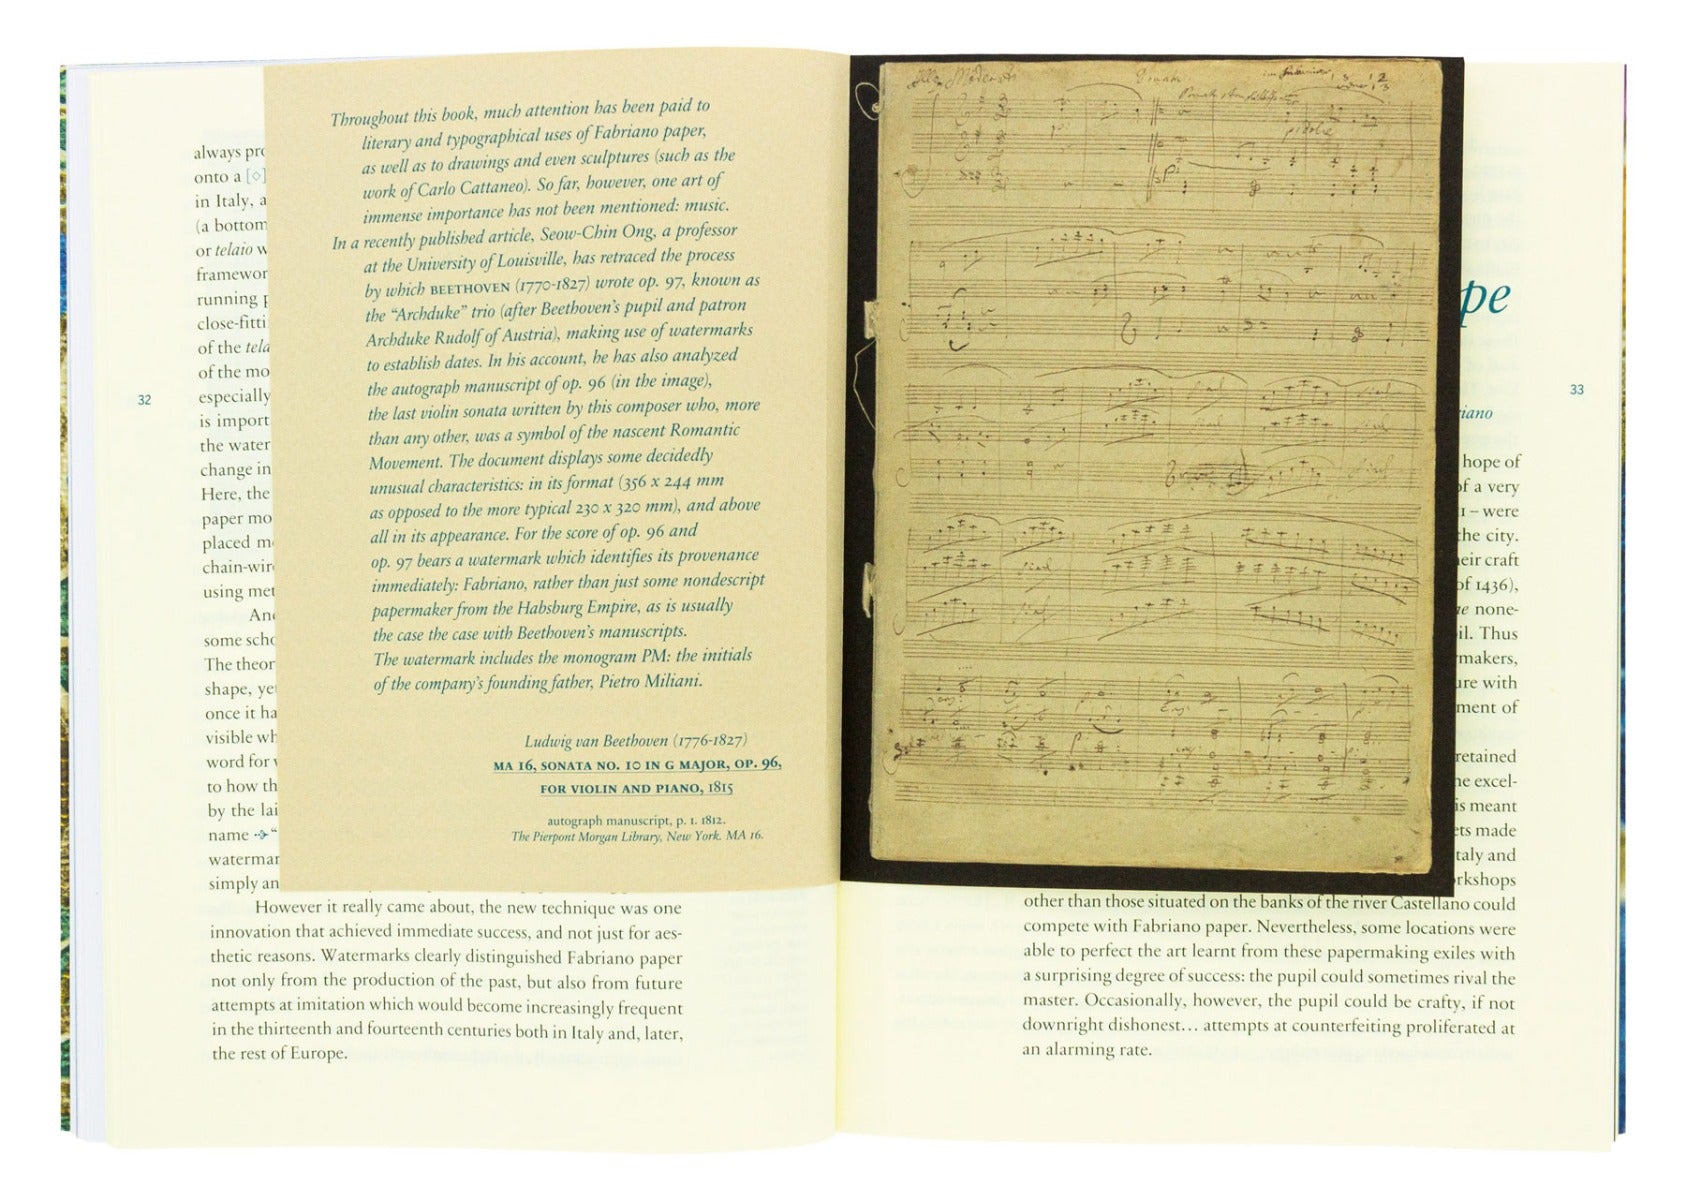 32
always pro
onto a [◇]
in Italy, a
(a bottom
or telaio w
framewor
running p
close-fitti
of the tela
of the mo
especially
is import
the water
change in
Here, the
paper mo
placed me
chain-wir
using met
And
some scho
The theor
shape, ye
once it ha
visible wh
word for
to how th
by the lai
name “
watermar
simply an
However it really came about, the new technique was one
innovation that achieved immediate success, and not just for aes-
thetic reasons. Watermarks clearly distinguished Fabriano paper
not only from the production of the past, but also from future
attempts at imitation which would become increasingly frequent
in the thirteenth and fourteenth centuries both in Italy and, later,
the rest of Europe.
Throughout this book, much attention has been paid to
literary and typographical uses of Fabriano paper,
as well as to drawings and even sculptures (such as the
work of Carlo Cattaneo). So far, however, one art of
immense importance has not been mentioned: music.
In a recently published article, Seow-Chin Ong, a professor
at the University of Louisville, has retraced the process
by which BEETHOVEN (1770-1827) wrote op. 97, known as
the “Archduke” trio (after Beethoven’s pupil and patron
Archduke Rudolf of Austria), making use of watermarks
to establish dates. In his account, he has also analyzed
the autograph manuscript of op. 96 (in the image),
the last violin sonata written by this composer who, more
than any other, was a symbol of the nascent Romantic
Movement. The document displays some decidedly
unusual characteristics: in its format (356 x 244 mm
as opposed to the more typical 230 x 320 mm), and above
all in its appearance. For the score of op. 96 and
op. 97 bears a watermark which identifies its provenance
immediately: Fabriano, rather than just some nondescript
papermaker from the Habsburg Empire, as is usually
the case the case with Beethoven’s manuscripts.
The watermark includes the monogram PM: the initials
of the company’s founding father, Pietro Miliani.
Ludwig van Beethoven (1776-1827)
MA 16, SONATA NO. 10 IN G MAJOR, OP. 96,
FOR VIOLIN AND PIANO, 1815
autograph manuscript, p. 1. 1812.
The Pierpont Morgan Library, New York. MA 16.
33
pe
riano
hope of
of a very
1 – were
the city.
heir craft
of 1436),
ne none-
il. Thus
makers,
ure with
ment of
retained
he excel-
is meant
ets made
taly and
rkshops
other than those situated on the banks of the river Castellano could
compete with Fabriano paper. Nevertheless, some locations were
able to perfect the art learnt from these papermaking exiles with
a surprising degree of success: the pupil could sometimes rival the
master. Occasionally, however, the pupil could be crafty, if not
downright dishonest... attempts at counterfeiting proliferated at
an alarming rate.